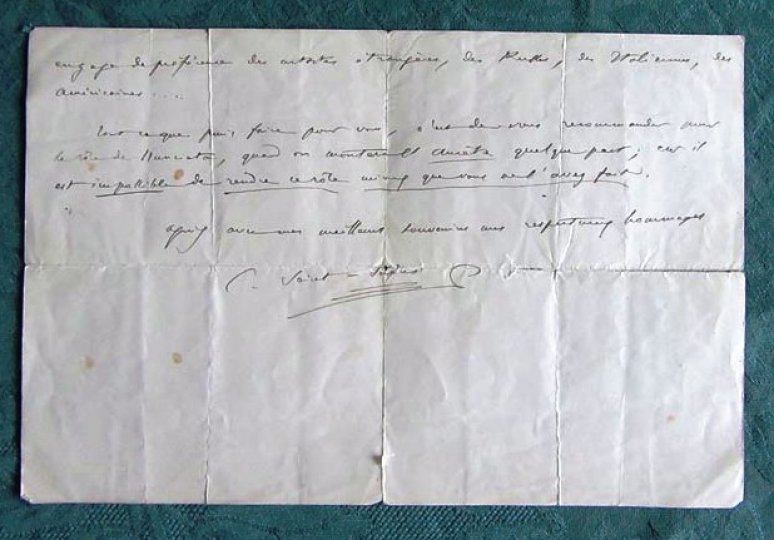 engage de préférence des artistes étrangères, des Russes, des Italiennes, des
Américaines . . . .
Tout ce que puis faire pour vous, c'est de vous recommander pour
le rôle de Nunciata, quand on monterait quelque part ; car il
est impossible de rendre ce rôle mieux que vous ne l'avez fait.
agréez avec mes meilleurs souvenirs mes respectueux hommages
C. Saint-Saëns